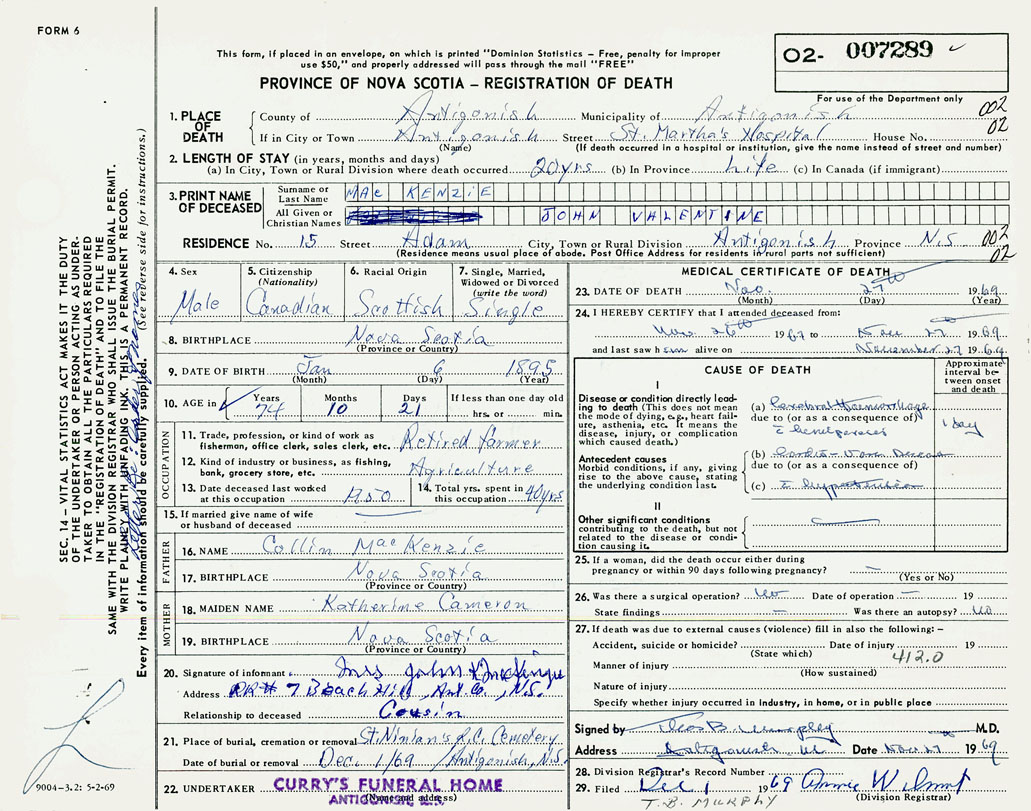 FORM 6
This form, if placed in an envelope, on which is printed "Dominion Statistics – Free, penalty for improper
use $50," and properly addressed will pass through the mail "FREE"
O2- 007289
PROVINCE OF NOVA SCOTIA – REGISTRATION OF DEATH
For use of the Department only
1. PLACE OF DEATH
County of Antigonish Municipality of Antigonish 002
If in City or Town Antigonish Street St. Martha's Hospital House No. 02
(Name) (If death occurred in a hospital or institution, give the name instead of street and number)
2. LENGTH OF STAY (in years, months and days)
(a) In City, Town or Rural Division where death occurred 20 yrs (b) In Province Life (c) In Canada (if immigrant)
3. PRINT NAME OF DECEASED
Surname or Last Name MAC KENZIE
All Given or Christian Names JOHN VALENTINE
RESIDENCE No. 15 Street Adam City, Town or Rural Division Antigonish Province N.S 002
(Residence means usual place of abode. Post Office Address for residents in rural parts not sufficient) 02
4. Sex
Male
5. Citizenship
(Nationality)
Canadian
6. Racial Origin
Scottish
7. Single, Married,
Widowed or Divorced
(write the word)
Single
8. BIRTHPLACE Nova Scotia
(Province or Country)
9. DATE OF BIRTH Jan 6 1895
(Month) (Day) (Year)
10. AGE in Years Months Days If less than one day
74 10 21 hrs. or min.
OCCUPATION
11. Trade, profession, or kind of work as
fisherman, office clerk, sales clerk, etc. Retired farmer
12. Kind of industry or business, as fishing,
bank, grocery store, etc. Agriculture
13. Date deceased last worked
at this occupation 1950
14. Total yrs. spent in
this occupation 40 yrs
15. If married give name of wife
or husband of deceased
FATHER
16. NAME Collin Mac Kenzie
17. BIRTHPLACE Nova Scotia
(Province or Country)
MOTHER
18. MAIDEN NAME Katherine Cameron
19. BIRTHPLACE Nova Scotia
(Province or Country)
20. Signature of informant Mrs John
Address RR # 7 Beach Hill Ant. Co., N.S.
Relationship to deceased Cousin
21. Place of burial, cremation or removal St. Ninian's R.C. Cemetery
Date of burial or removal Dec. 1/69 Antigonish, N.S.
22. UNDERTAKER CURRY'S FUNERAL HOME
(Name and address)
MEDICAL CERTIFICATE OF DEATH
23. DATE OF DEATH Nov. 27th 1969
(Month) (Day) (Year)
24. I HEREBY CERTIFY that I attended deceased from:
Nov. 26th 1967 to Nov 27 1969
and last saw him alive on November 27 1969
CAUSE OF DEATH
Approximate
interval be-
tween onset
and death
I
Disease or condition directly lead-
ing to death (This does not mean
the mode of dying, e.g., heart failure,
asthenia, etc. It means the
disease, injury, or complication
which caused death.)
(a) Cerebral Haemorrhage
due to (or as a consequence of)
1 day
Antecedent causes
Morbid conditions, if any, giving
rise to the above cause, stating
the underlying condition last.
(b)
due to (or as a consequence of)
(c)
II
Other significant conditions
contributing to the death, but not
related to the disease or condi-
tion causing it.
25. If a woman, did the death occur either during
pregnancy or within 90 days following pregnancy? –
(Yes or No)
26. Was there a surgical operation? No Date of operation – 19
State findings – Was there an autopsy? No
27. If death was due to external causes (violence) fill in also the following: –
Accident, suicide or homicide? Date of injury 19
(State which) 412.0
Manner of injury
(How sustained)
Nature of injury
Specify whether injury occurred in industry, in home, or in public place
Signed by B. Murphy M.D.
Address Antigonish Date Nov 27 1969
28. Division Registrar's Record Number
29. Filed Dec 1 1969 Annie
(Division Registrar)
T. B. MURPHY
SEC. 14 – VITAL STATISTICS ACT MAKES IT THE DUTY
OF THE UNDERTAKER OR PERSON ACTING AS UNDER-
TAKER TO OBTAIN ALL THE PARTICULARS REQUIRED
IN THE "REGISTRATION OF DEATH" AND TO FILE THE
SAME WITH THE DIVISION REGISTRAR WHO SHALL ISSUE THE BURIAL PERMIT.
WRITE PLAINLY WITH UNFADING INK. THIS IS A PERMANENT RECORD.
Every item of information should be carefully supplied. (See reverse side for instructions.)
9004-3.2: 5-2-69